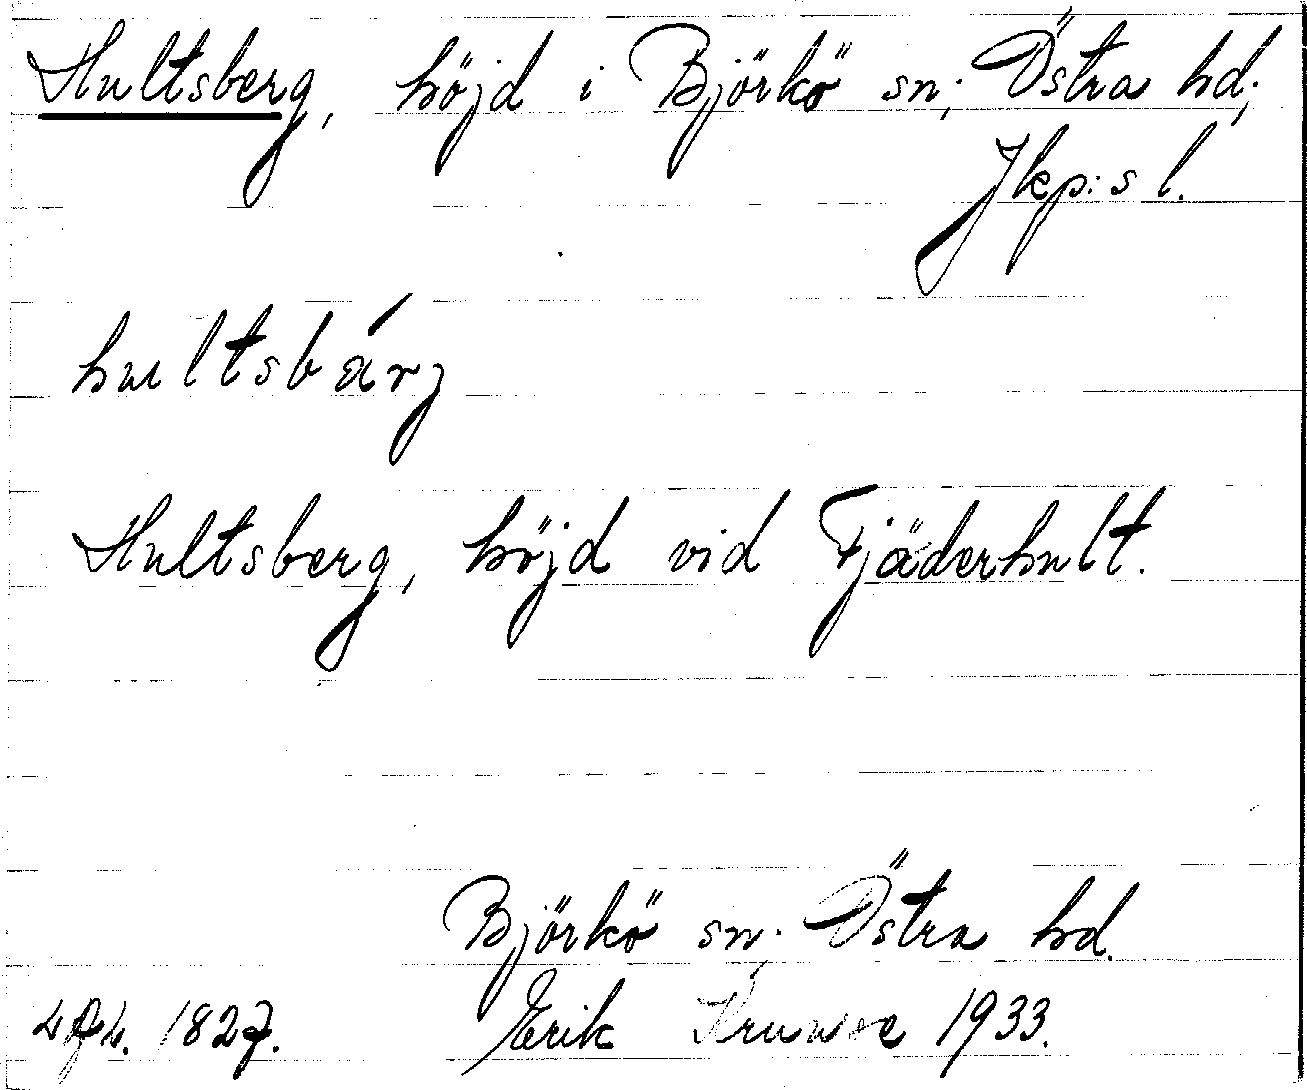 Hultsberg, höjd i Björkö sn; Östra hd;
Jkp:s l.
hultsbárj
Hultsberg, höjd vid Fjäderhult.
Björkö sn; Östra hd.
1827. Erik 1933.